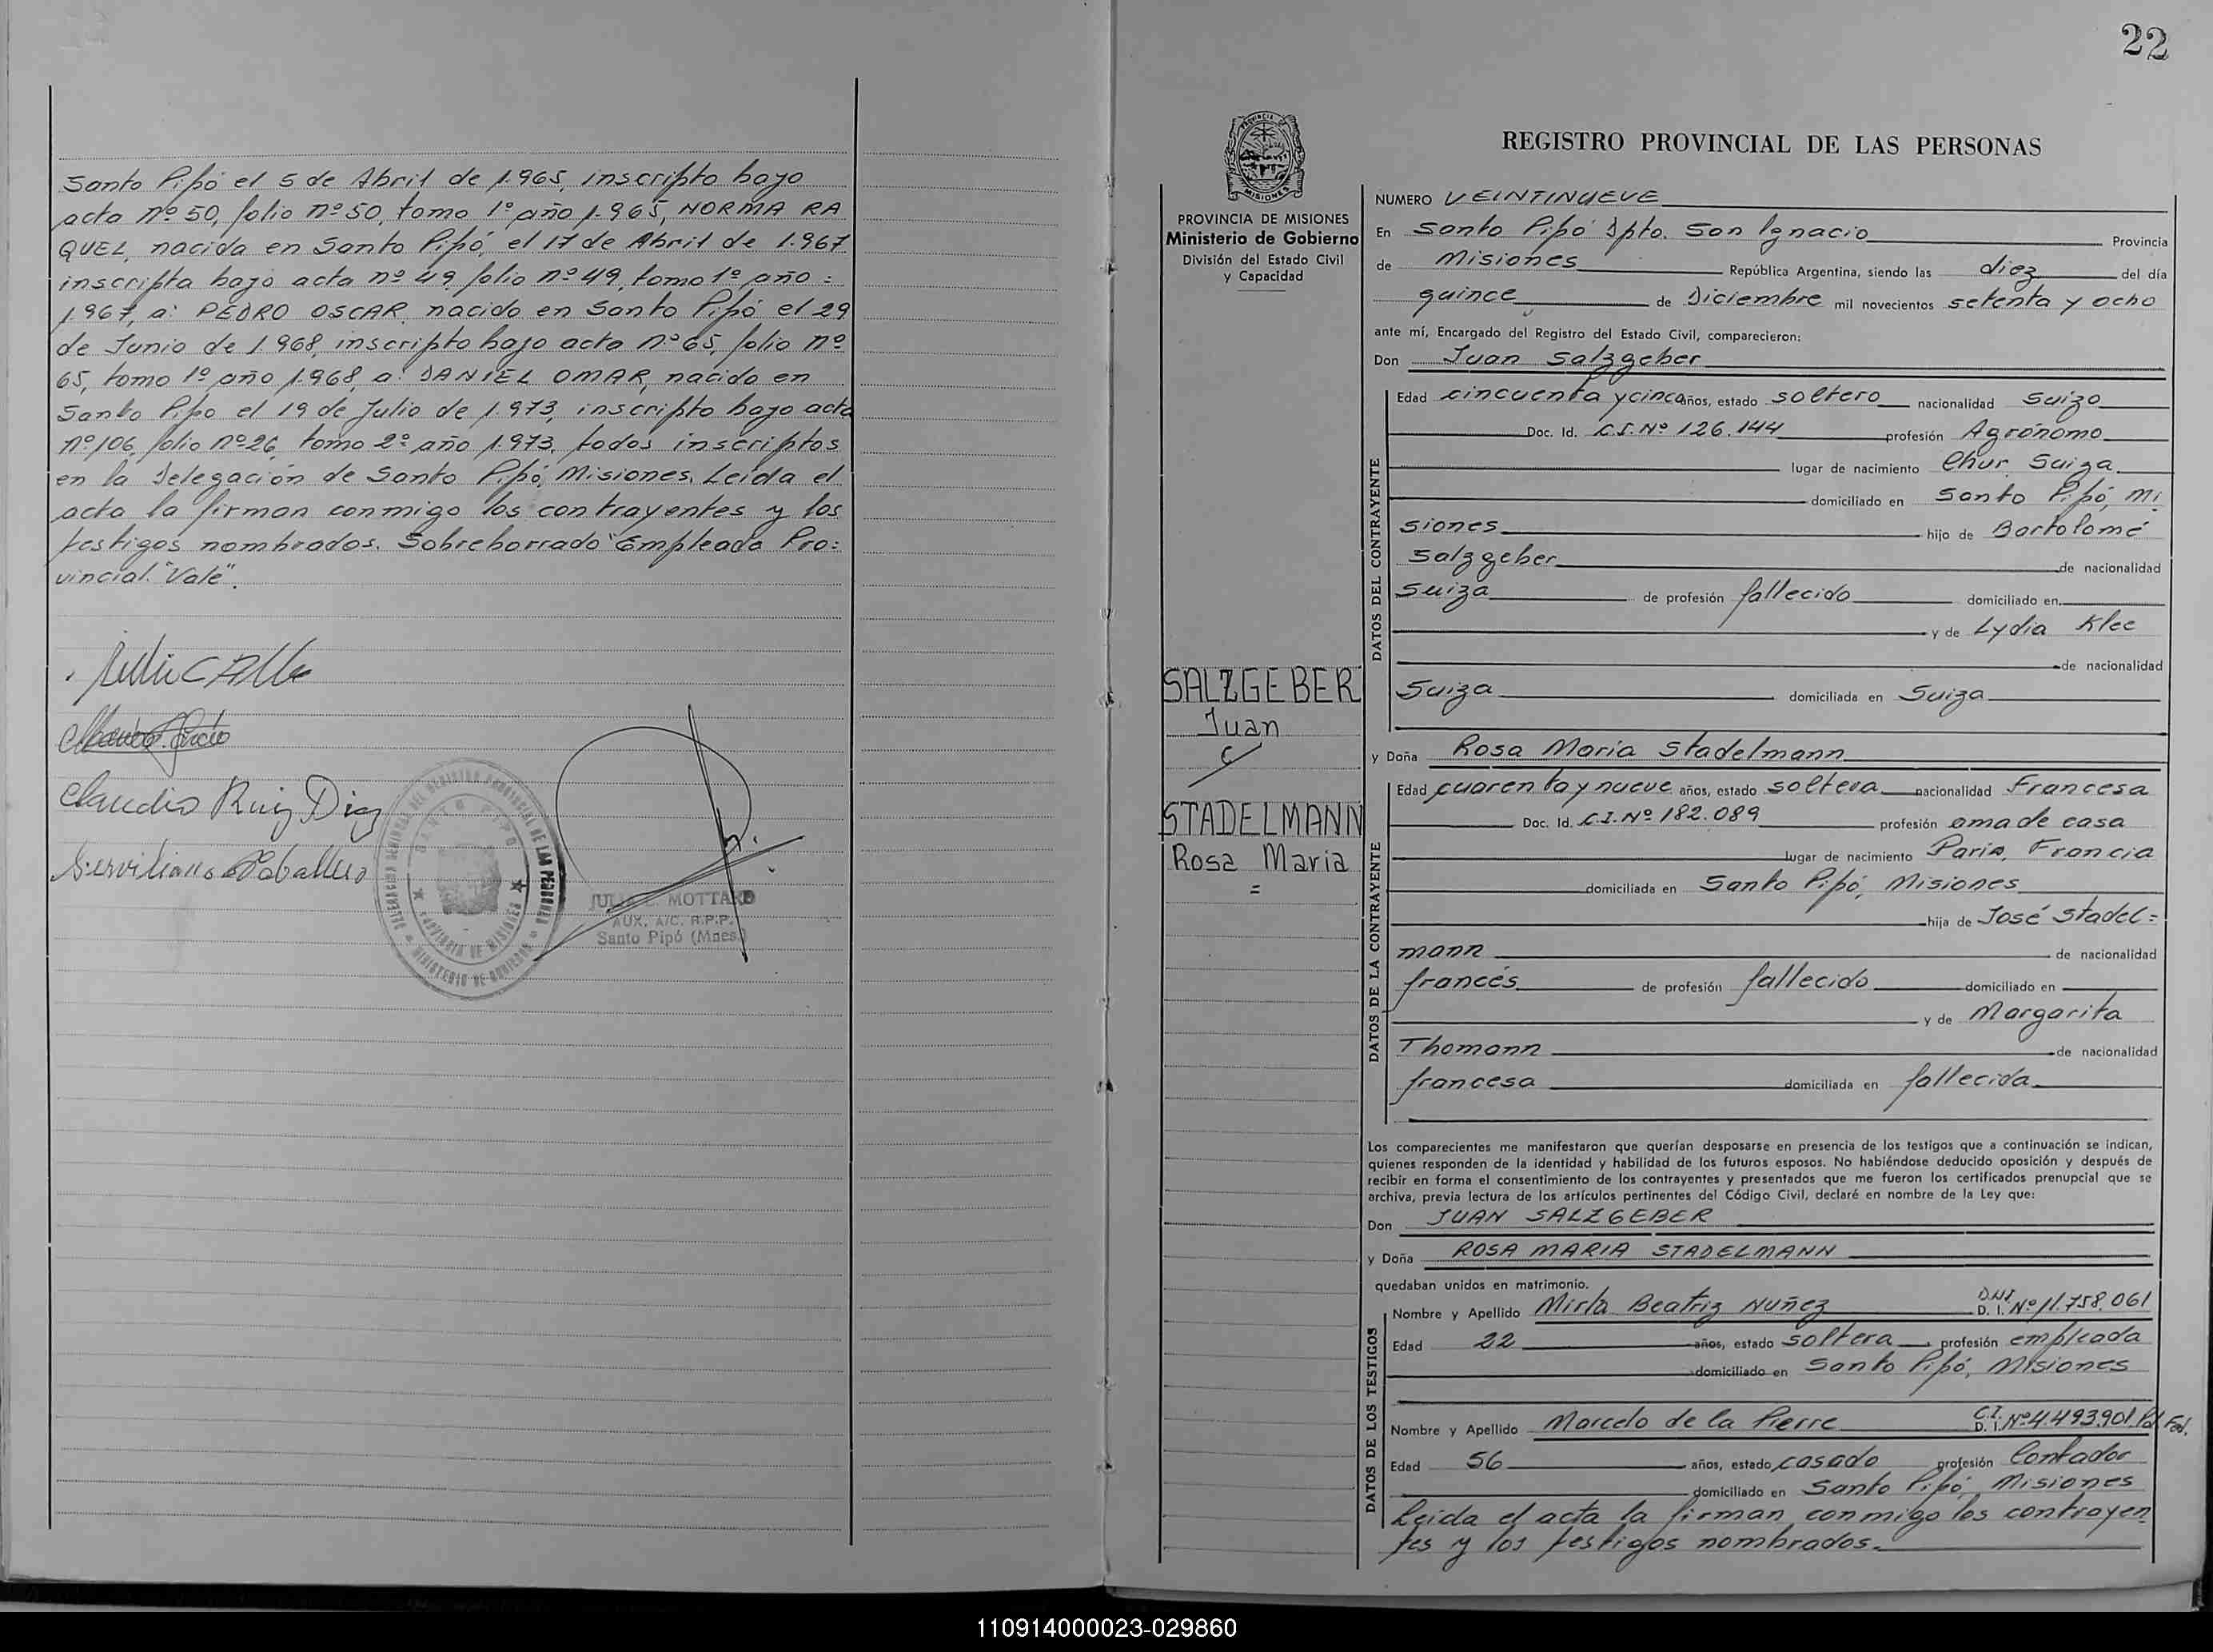 Santo Pipó el 5 de Abril de 1.965, inscripto bajo
acta nº 50, folio nº 50, tomo 1º año 1.965, NORMA RA
QUEL, nacida en Santo Pipó, el 17 de Abril de 1.967
inscripta bajo acta nº 49 folio nº 49, tomo 1º año :
1.967, a: PEDRO OSCAR, nacido en Santo Pipó el 29
de Junio de 1.968, inscripto bajo acta nº 65, folio nº
65, tomo 1º año 1.968, a: DANIEL OMAR, nacido en
Santo Pipo el 19 de Julio de 1.973, inscripto bajo acta
nº 106, folio nº 26, tomo 2º año 1.973, todos inscriptos
en la Delegación de Santo Pipó, Misiones. Leída el
acta la firman conmigo los contrayentes y los
testigos nombrados. Sobreborrado "Empleado Pro=
vincial. "Vale".
Claudio Ruiz Diaz
Serviliano Caballero
JULIA E. MOTTARD
AUX. A/C. R.P.P.
Santo Pipó (Mnes.)
SANTO PIPO
PROVINCIA DE MISIONES
MINISTERIO DE GOBIERNO
22
PROVINCIA DE
MISIONES
REGISTRO PROVINCIAL DE LAS PERSONAS
PROVINCIA DE MISIONES
Ministerio de Gobierno
División del Estado Civil
y Capacidad
SALZGEBER
Juan
c/
STADELMANN
Rosa Maria
=
NUMERO VEINTINUEVE
En Santo Pipó Dpto. San Ignacio Provincia
de Misiones República Argentina, siendo las diez del día
quince de Diciembre mil novecientos setenta y ocho
ante mí, Encargado del Registro del Estado Civil, comparecieron:
Don Juan Salzgeber
DATOS DEL CONTRAYENTE
Edad cincuenta y cinco años, estado soltero nacionalidad Suizo
Doc. Id. C.I. Nº 126.144 profesión Agrónomo
lugar de nacimiento Chur Suiza
domiciliado en Santo Pipó, Mi
siones hijo de Bartolomé
Salzgeber de nacionalidad
Suiza de profesión fallecido domiciliado en
y de Lydia Klee
de nacionalidad
Suiza domiciliada en Suiza
y Doña Rosa Maria Stadelmann
DATOS DE LA CONTRAYENTE
Edad cuarenta y nueve años, estado soltera nacionalidad Francesa
Doc. Id. C.I. Nº 182.089 profesión ama de casa
lugar de nacimiento Paris, Francia
domiciliada en Santo Pipó, Misiones
hija de José Stadel=
mann de nacionalidad
francés de profesión fallecido domiciliado en
y de Margarita
Thomann de nacionalidad
francesa domiciliada en fallecida
Los comparecientes me manifestaron que querían desposarse en presencia de los testigos que a continuación se indican,
quienes responden de la identidad y habilidad de los futuros esposos. No habiéndose deducido oposición y después de
recibir en forma el consentimiento de los contrayentes y presentados que me fueron los certificados prenupcial que se
archiva, previa lectura de los artículos pertinentes del Código Civil, declaré en nombre de la Ley que:
Don JUAN SALZGEBER
y Doña ROSA MARIA STADELMANN
quedaban unidos en matrimonio.
DATOS DE LOS TESTIGOS
Nombre y Apellido Mirta Beatriz Nuñez D.N.I. D. I. Nº 11.758.061
Edad 22 años, estado soltera profesión empleada
domiciliado en Santo Pipó, Misiones
Nombre y Apellido Marcelo de la Pierre C.I. D. I. Nº 4.493.901 Pol. Fed.
Edad 56 años, estado casado profesión Contador
domiciliado en Santo Pipó, Misiones
Leída el acta la firman conmigo los contrayen
tes y los testigos nombrados.
110914000023-029860